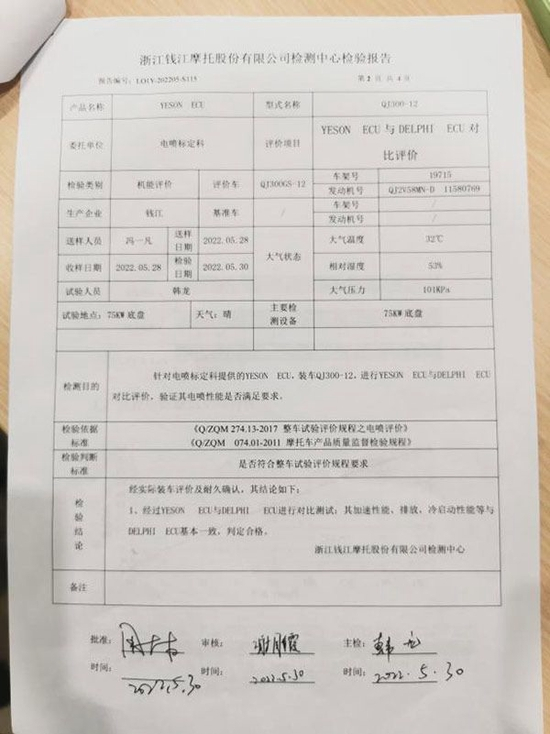 浙江钱江摩托股份有限公司检测中心检验报告
报告编号：LOLY-202205-S115 第 2 页 共 4 页
产品名称 YESON ECU 型式名称 QJ300-12
委托单位 电喷标定科 评价项目 YESON ECU 与 DELPHI ECU 对
比评价
检验类别 机能评价 评价车 QJ300GS-12 车架号 19715
发动机号 QJ2V58MN-D 11580769
生产企业 钱江 基准车 / 车架号 /
发动机号 /
送样人员 冯一凡 送样日期 2022.05.28 大气状态 大气温度 32℃
收样日期 2022.05.28 检验日期 2022.05.30 相对湿度 53%
试验人员 韩龙 大气压力 101KPa
试验地点：75KW 底盘 天气：晴 主要检测设备 75KW 底盘
检测目的 针对电喷标定科提供的YESON ECU，装车QJ300-12，进行YESON ECU与DELPHI ECU
对比评价，验证其电喷性能是否满足要求。
检验依据标准 《Q/ZQM 274.13-2017 整车试验评价规程之电喷评价》
《Q/ZQM 074.01-2011 摩托车产品质量监督检验规程》
检验判断标准 是否符合整车试验评价规程要求
检验结论 经实际装车评价及耐久确认，其结论如下：
1、经过YESON ECU与DELPHI ECU进行对比测试；其加速性能、排放、冷启动性能等与
DELPHI ECU基本一致，判定合格。
浙江钱江摩托股份有限公司检测中心
备注
批准： 审核： 主检：韩龙
时间：2022.5.30 时间：2022.5.30 时间：2022.5.30